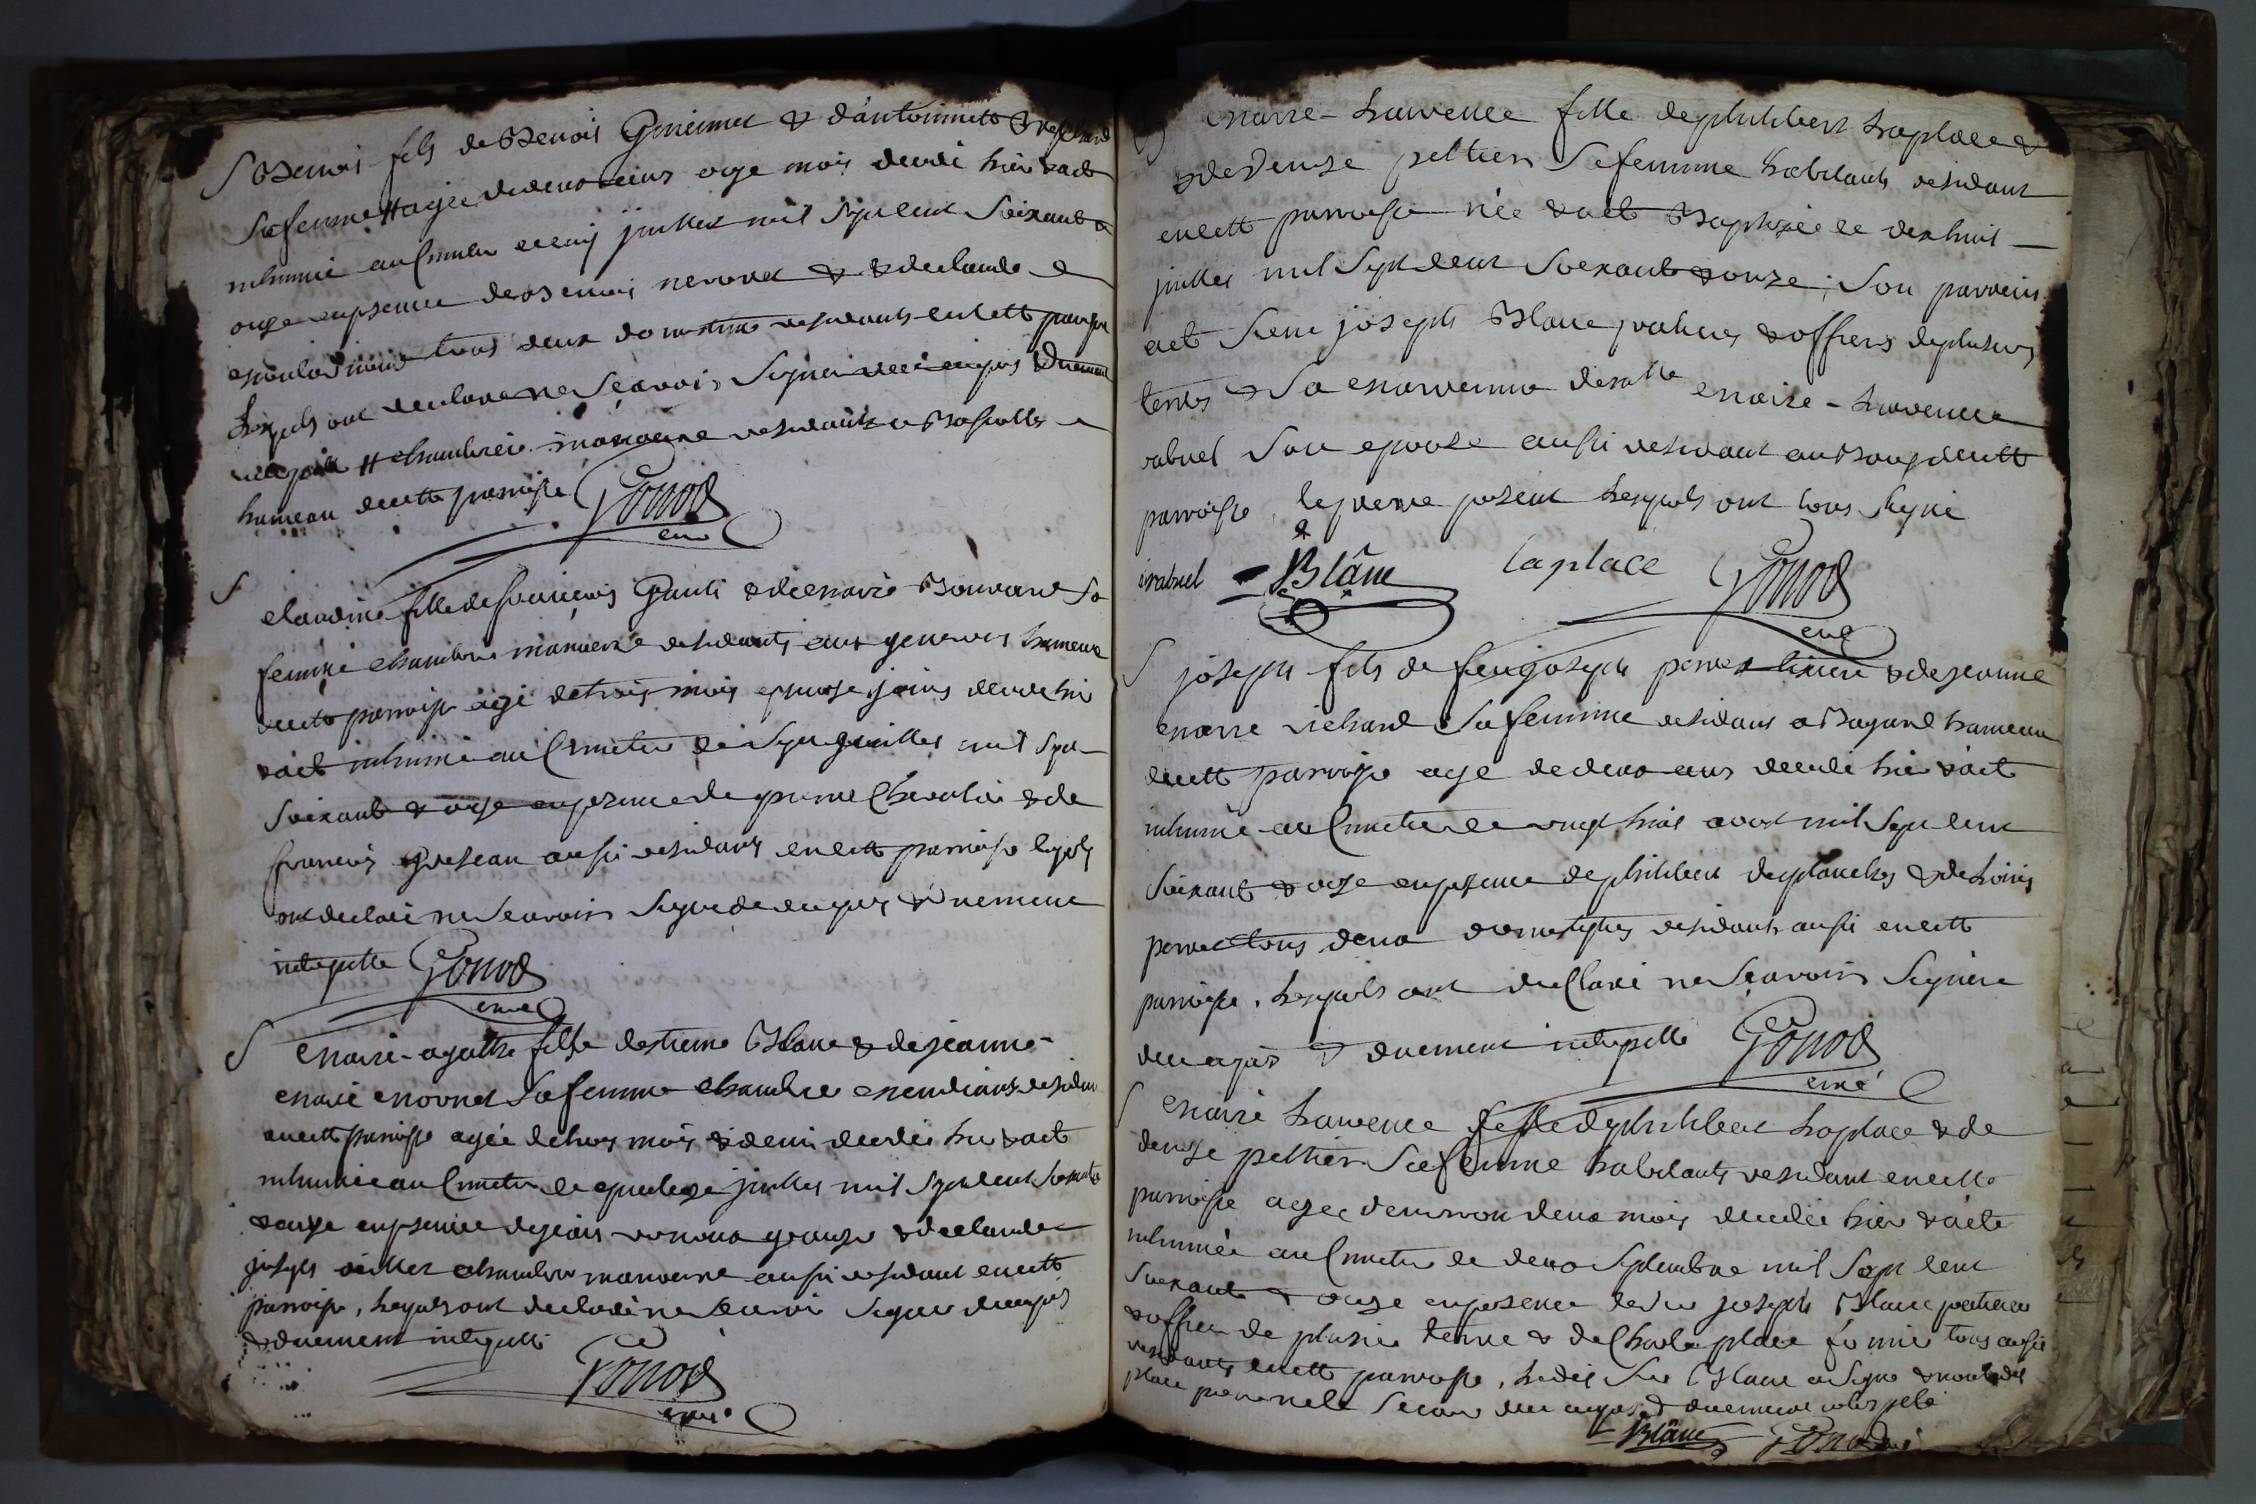 Benois fils de Benois & d'antoinette
Sa femme # agée de deux ans onze mois decedé hier & acte
inhumé au Cimetiere juillet mil sept cent soixante &
onze en presence de Benois & de claude
tous deux domestiques residants en cette paroisse
Lesquels ont declare ne Sçavoir Signer de ce enquis & duement
interpelle # chambrier manoeuvre residants a
hameau de cette paroisse Gonod
curé
claudine fille de francois & de marie Bouvard Sa
femme chambrier manoeuvre residants aux hameau
de cette paroisse agé de trois mois & quinze jours decede hier
& acte inhumé au Cimetiere le Sept juillet mil sept
soixante & onze en presence de pierre Chevalier & de
francois aussi residants en cette paroisse lesquels
ont declaré ne Scavoir Signer de ce enquis & duement
interpelle Gonod
curé
marie-agathe fille destienne Blanc & de jeanne-
marie Sa femme chambrier mendiants residant
en cette paroisse agée de trois mois & demi decedée hier & acte
inhumée au Cimetiere le quatorze juillet mil sept cent soixante
& onze en presence de jean & de claude
joseph chambrier manoeuvre aussi residant en cette
paroisse, lesquels ont declare ne Scavoir Signer de ce enquis
& duement interpellé
Gonod
curé
marie-Laurence fille de philibert Laplace &
& de denise peltier Sa femme habitants residant
en cette paroisse née & acte Baptizée le dixhuit
juillet mil Sept cent soixante & onze; Son parrein
acte Sieur joseph Blanc praticien & officier de plusieurs
terres & Sa marreinne demoiselle marie-Laurence
rabuel Son epouse aussi residant au Bourg de cette
paroisse, le pere present Lesquels ont tous Signé
rabuel Blânc laplace Gonod
curé
joseph fils de feu joseph perret & de jeanne
marie richard Sa femme residans a Bayard hameau
de cette paroisse agé de deux ans decede hier & acte
inhumé au Cimetiere le vingt huit aout mil Sept cent
soixante & onze en presence de philibert desplanches & de Loüis
perret tous deux domestiques residants aussi en cette
paroisse, Lesquels ont declaré ne Scavoir Signer
de ce enquis & duement interpelle Gonod
curé
marie Laurence fille de philibert Laplace & de
denise peltier Sa femme habitants residant en cette
paroisse agée d'environ deux mois decedée hier & acte
inhumée au Cimetiere le deux Septembre mil Sept cent
soixante & onze en presence de Sieur joseph Blanc praticien
& officier de plusieurs terre & de Charle place tous aussi
residants en cette paroisse, Ledit Sieur Blanc a Signé & non ledit
place pour ne le Scavoir de ce enquis & duement interpelé
Blânc Gonod curé